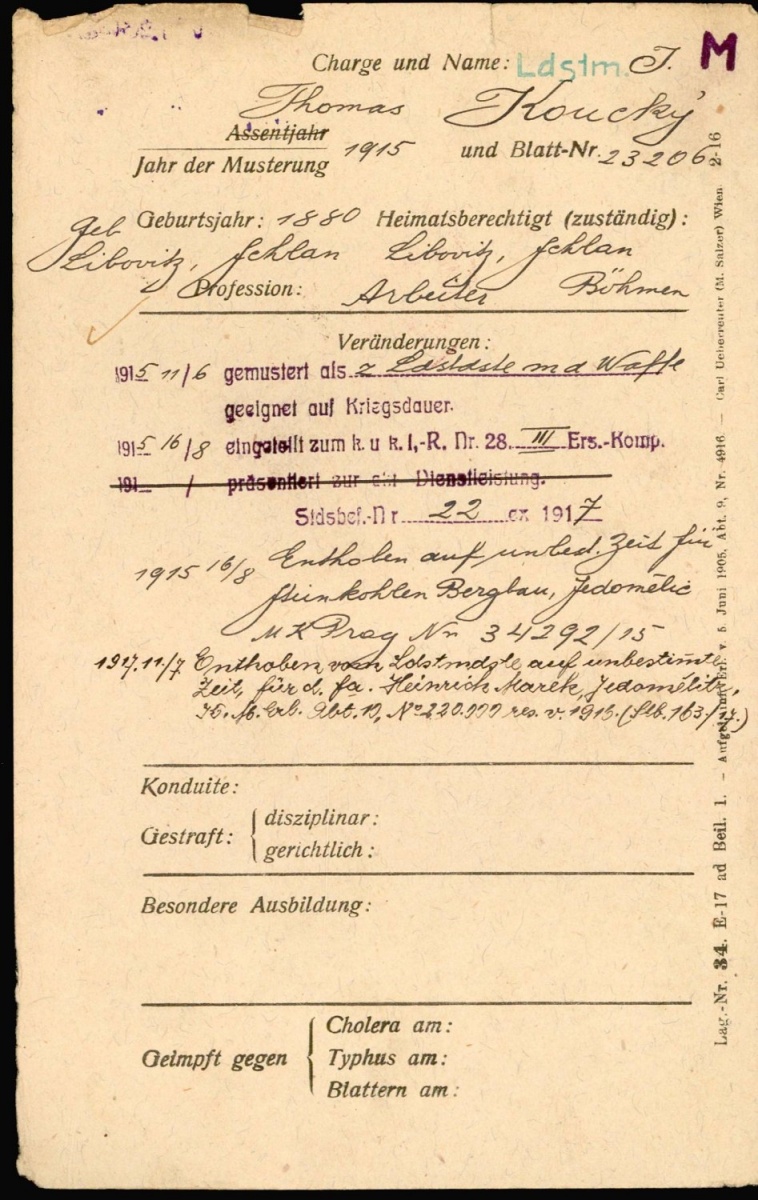 Charge und Name: Ldstm. J. M
Thomas Koucký
Assentjahr
Jahr der Musterung 1915 und Blatt-Nr. 23206
geb Geburtsjahr: 1880 Heimatsberechtigt (zuständig):
Libovitz, Schlan Libovitz, Schlan
Profession: Arbeiter Böhmen
Veränderungen:
1915 11/6 gemustert als z Ldstdste m d Waffe
geeignet auf Kriegsdauer.
1915 16/8 eingeteilt zum k. u k. I.-R. Nr. 28. III Ers.-Komp.
191 / präsentiert zur akt Dienstleistung.
Stdsbef.-Nr 22 ex 1917
1915 16/8 Enthoben auf unbest. Zeit für
Steinkohlen Bergbau, Jedomělic
MK Prag Nr 34292/15
1917.11/7 Enthoben vom Ldstmdste auf unbestimte
Zeit, für d. fa. Heinrich Marek, Jedomělitz,
K. M. Erl. Abt. 10, No 220.000 res. v. 1916. (Stb. 163/17.)
Konduite:
Gestraft: disziplinar:
gerichtlich:
Besondere Ausbildung:
Geimpft gegen Cholera am:
Typhus am:
Blattern am:
Lag.-Nr. 34. E-17 ad Beil. 1. – Erl. v. 5. Juni 1905, Abt. 9, Nr. 4916. — Carl Ueberreuter (M. Salzer) Wien 2-16